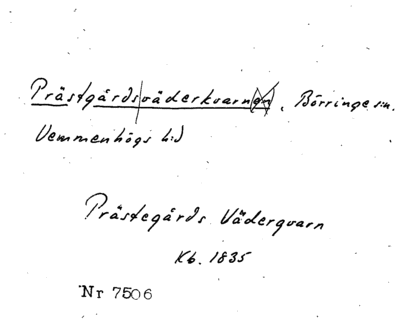 Prästgårdsväderkvarnen, Börringe sn.
Vemmenhögs hd
Prästegårds Väderqvarn
Kb. 1835
Nr 7506